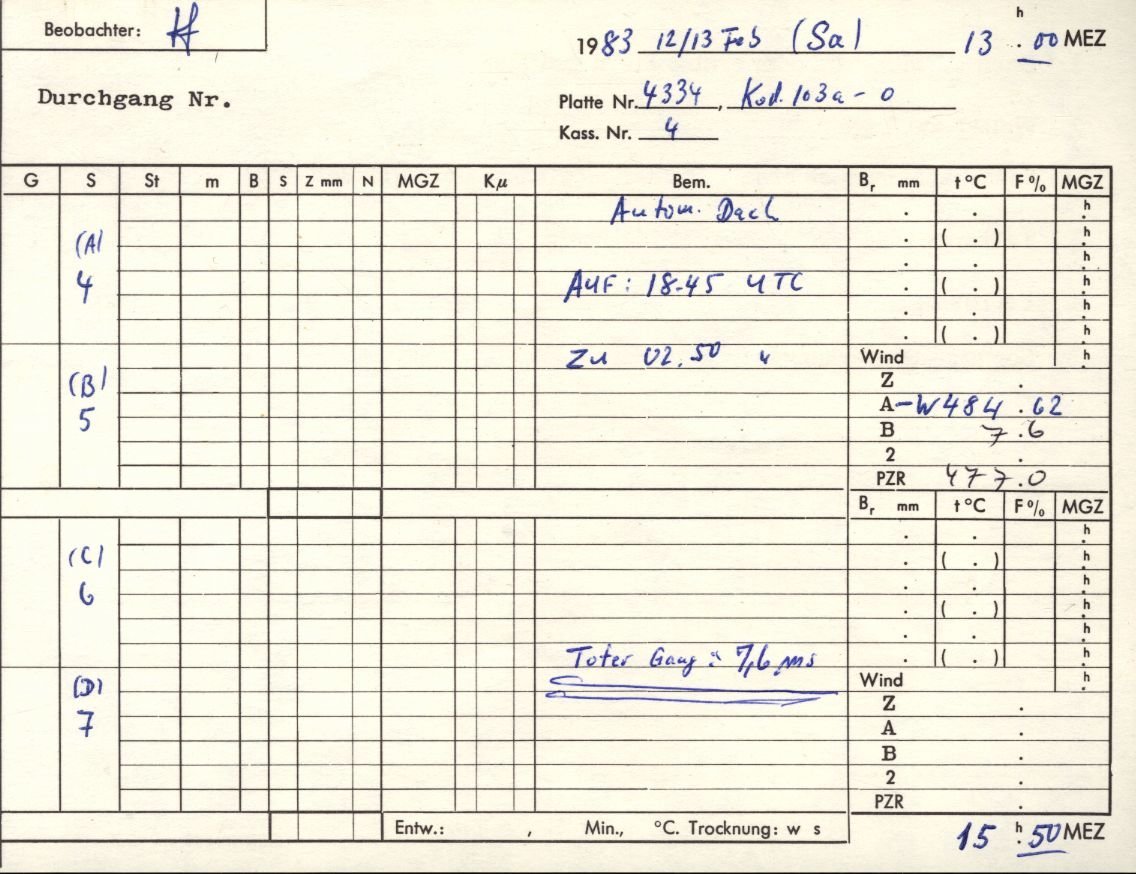 Beobachter: H
1983 12/13 Feb (Sa) 13 h . 00 MEZ
Durchgang Nr.
Platte Nr. 4334, Kod. 103a-0
Kass. Nr. 4
G S St m B S Z mm N MGZ Kμ Bem. Br mm t°C F% MGZ
Autom. Dach . . h
(A) . ( . ) h
. . h
4 Auf: 18.45 UTC . ( . ) h
. . h
. ( . ) h
Zu 02.50 " Wind h
(B) Z .
A -W 484 . 62
5 B 7.6
2 .
PZR 477.0
Br mm t°C F% MGZ
. . h
(C) . ( . ) h
. . h
6 . ( . ) h
. . h
Toter Gang = 7,6 ms . ( . ) h
(D) Wind h
Z .
7 A .
B .
2 .
PZR .
Entw.: , Min., °C. Trocknung: w s
15 h . 50 MEZ